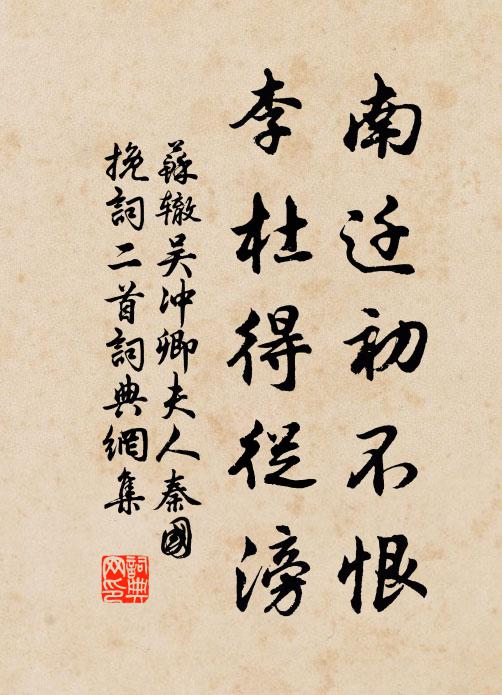 南迁初不恨
李杜得從滂
蘇辙吴沖卿夫人秦國
挽詞二首詞典網集
詞典网印